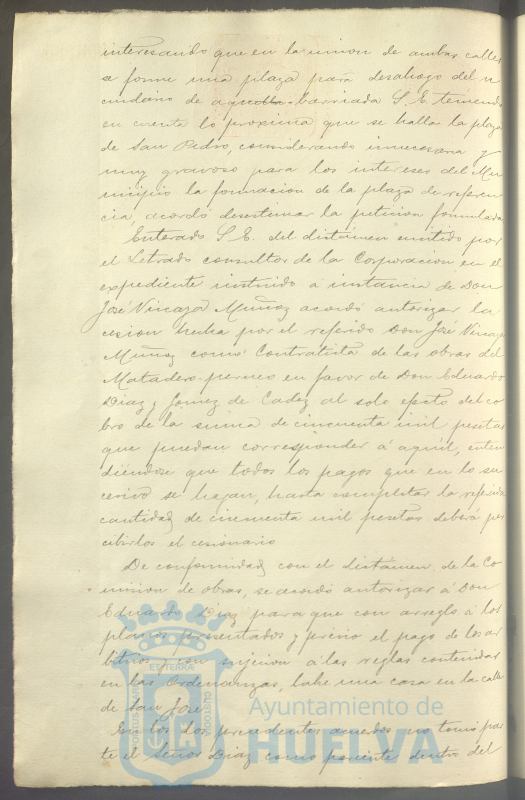 interesando que en la union de ambas calles
se forme una plaza para desahogo del ve
cindario de aquella barriada S. E. teniendo
en cuenta lo proxima que se halla la plaza
de San Pedro, considerando innecesaria y
muy gravoso para los intereses del Mu
nicipio la formacion de la plaza de referen
cia, acordó desestimar la peticion formulada
Enterado S. E. del dictámen emitido por
el Letrado consultor de la Corporacion en el
expediente instruido a instancia de Don
José Vincaza Muñoz acordó autorizar la
cesion hecha por el referido Don José Vincaza
Muñoz como Contratista de las obras del
Matadero perneo en favor de Don Eduardo
Diaz y Gomez de Cadiz al solo efecto del co
bro de la suma de cincuenta mil pesetas
que puedan corresponder á aquél, enten
diéndose que todos los pagos que en lo su
cesivo se hagan, hasta completar la referida
cantidad de cincuenta mil pesetas deberá per
cibirlos el cesionario
De conformidad con el dictámen de la Co
mision de obras, se acordó autorizar á Don
Eduardo Diaz para que con arreglo á los
planos presentados y previo el pago de los ar
bitrios y con sujecion a las reglas contenidas
en las Ordenanzas, labre una casa en la calle
de San José
En los dos precedentes acuerdos no tomó par
te el Señor Diaz como pariente dentro del
PORTUS MARIS
ET TERRÆ
CUSTODIA
Ayuntamiento de
HUELVA